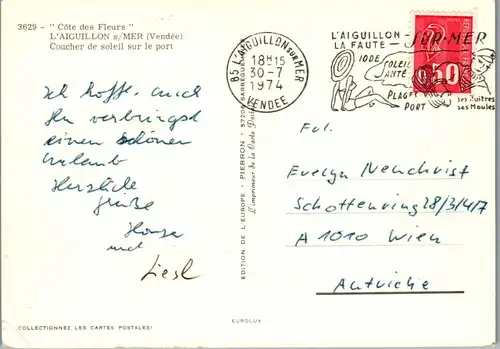 3629 - " Côte des Fleurs "
L'AIGUILLON s/MER (Vendée)
Coucher de soleil sur le port
Ich hoffe, auch
Du verbringst
einen schönen
Urlaub
Herzliche
Grüße
und
Liesl
COLLECTIONNEZ LES CARTES POSTALES!
EDITION DE L'EUROPE - PIERRON - 57200
L'imprimeur de la Carte
EUROLUX
85 L'AIGUILLON sur MER
18H15
30-7
1974
VENDEE
L'AIGUILLON - SUR-MER
LA FAUTE
IODE SOLEIL
SANTÉ
PLAGE
PORT
ses Huitres
ses Moules
0.50
Frl.
Evelyn Neuchrist
Schottenring 28/3/4/7
A 1010 Wien
Autriche